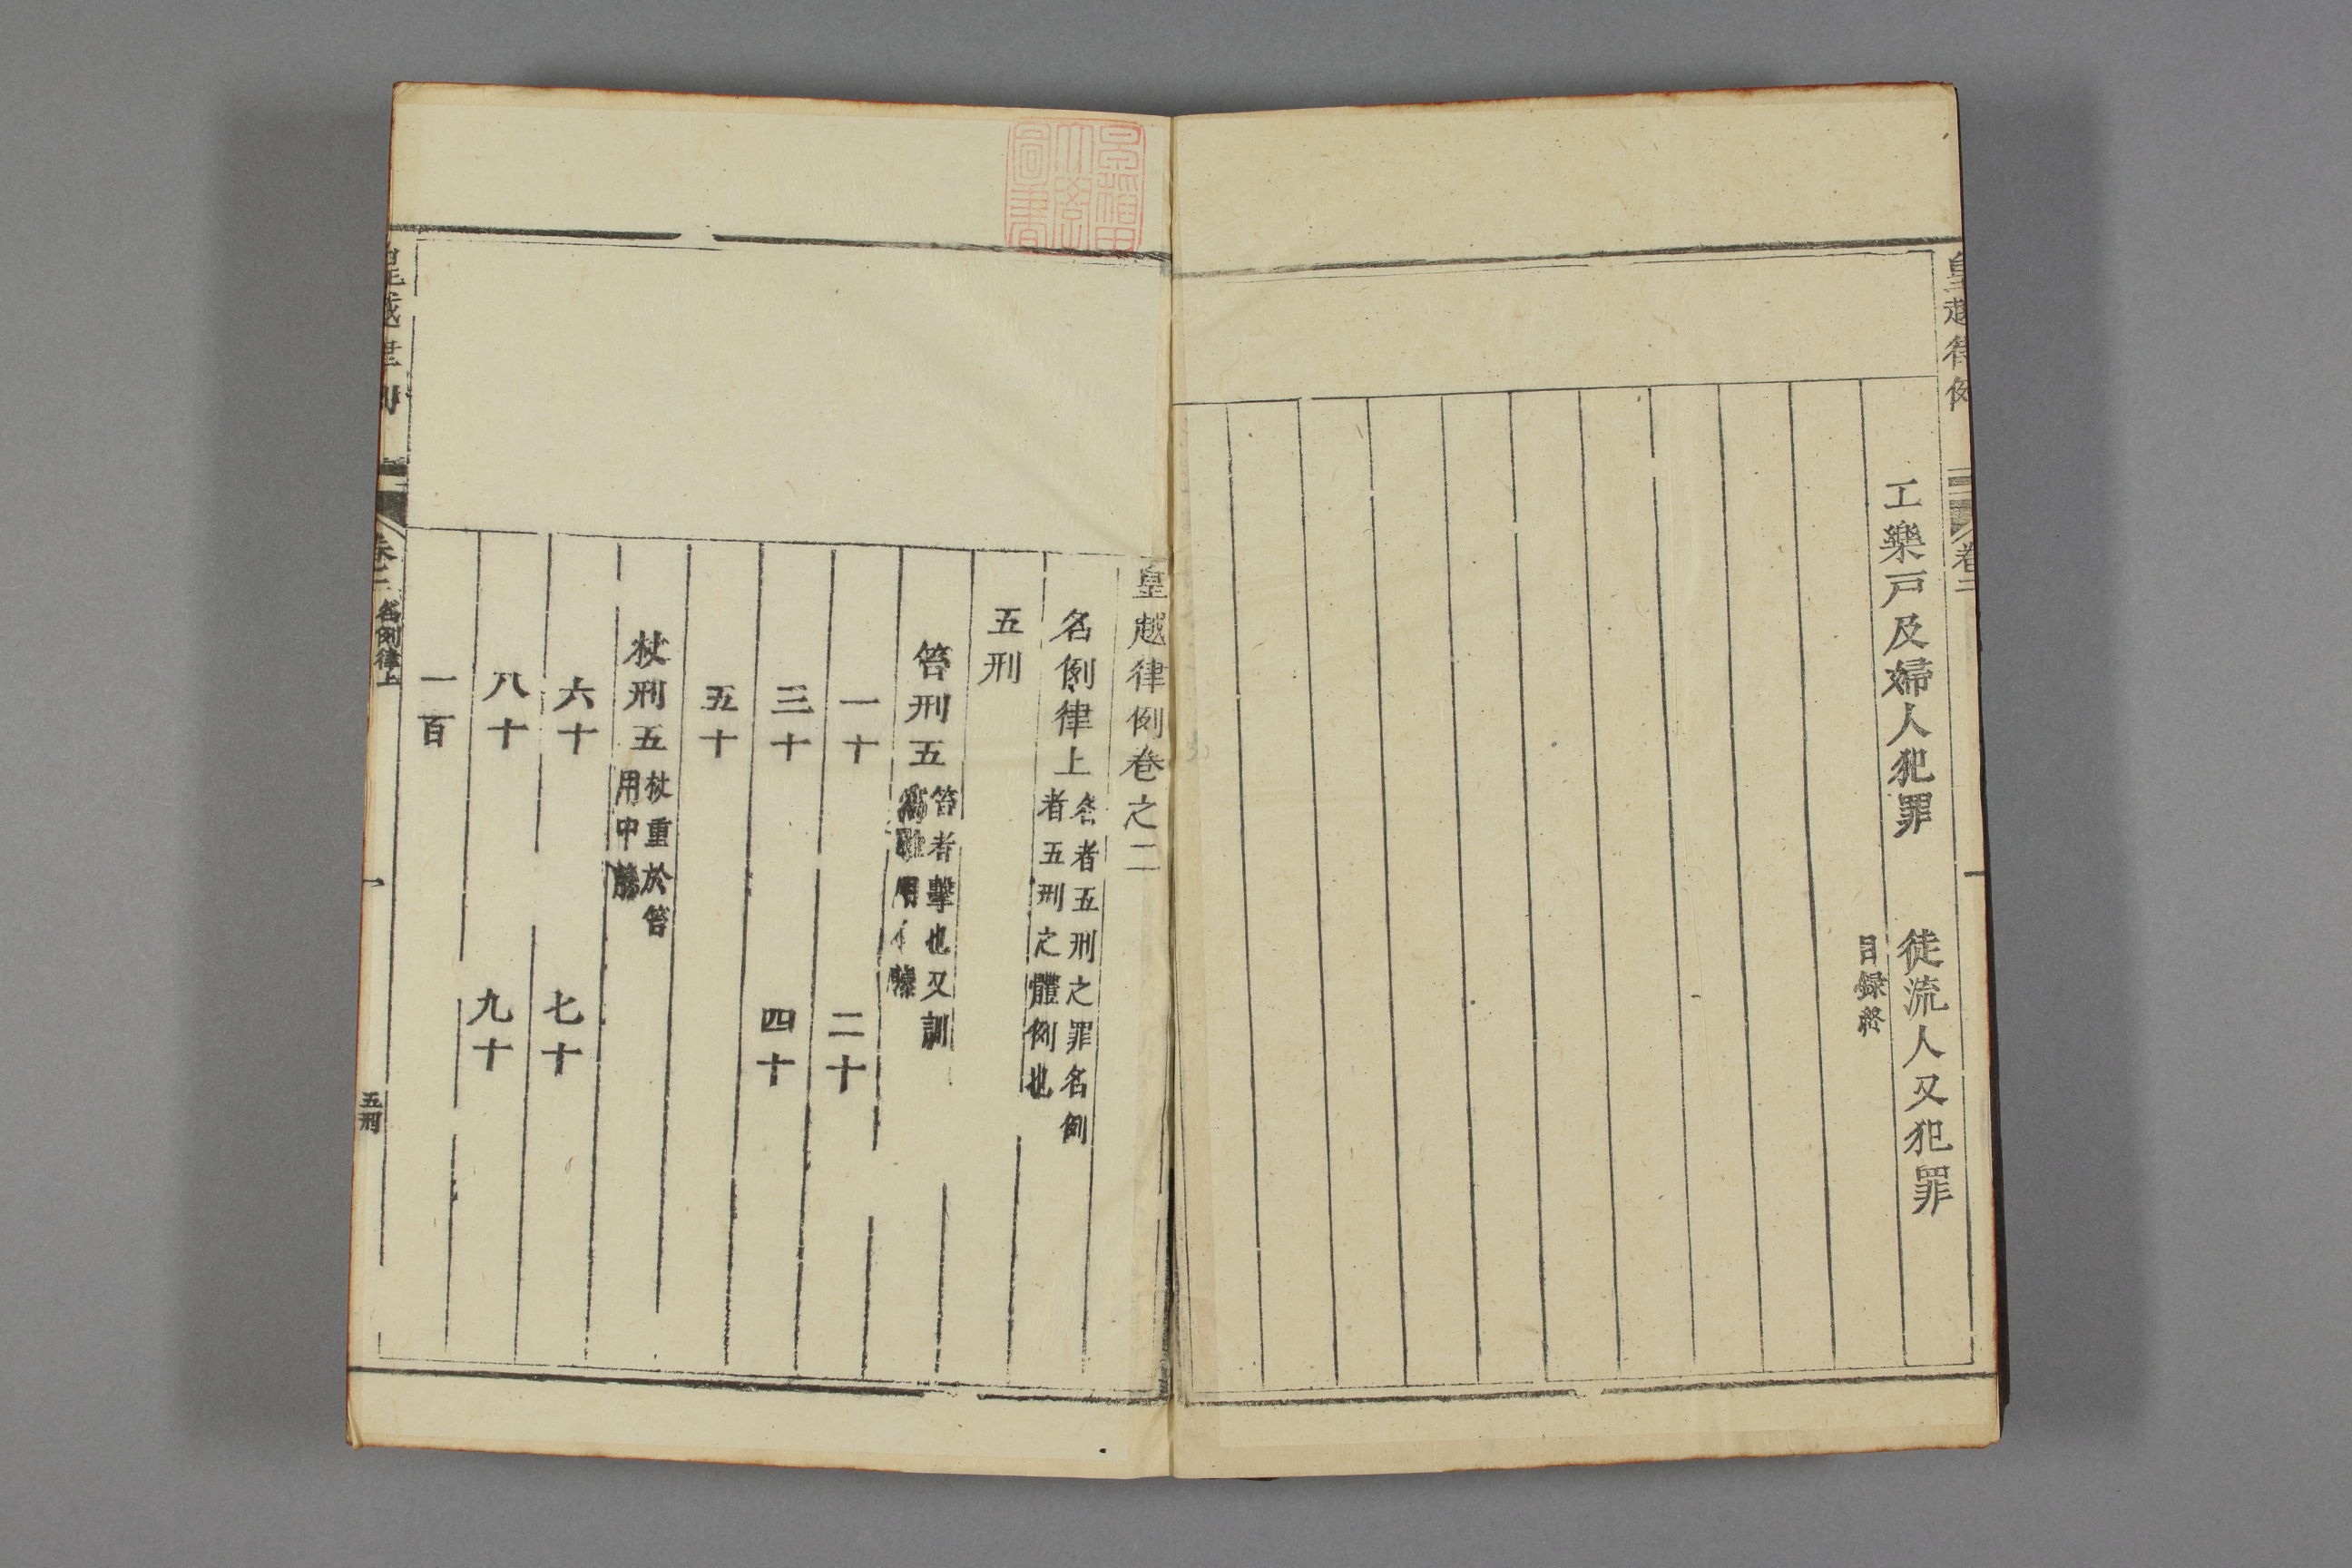 皇越律例
卷二
工樂戸及婦人犯罪　徒流人又犯罪
目録終
早稲田
大學
圖書
皇越律例卷之二
名例律上
名者五刑之罪名例
者五刑之體例也
五刑
笞刑五
笞者擊也又訓
爲恥用小藤
一十　二十
三十　四十
五十
杖刑五
杖重於笞
用中藤
六十　七十
八十　九十
一百
皇越律例
卷二
名例律上
一
五刑